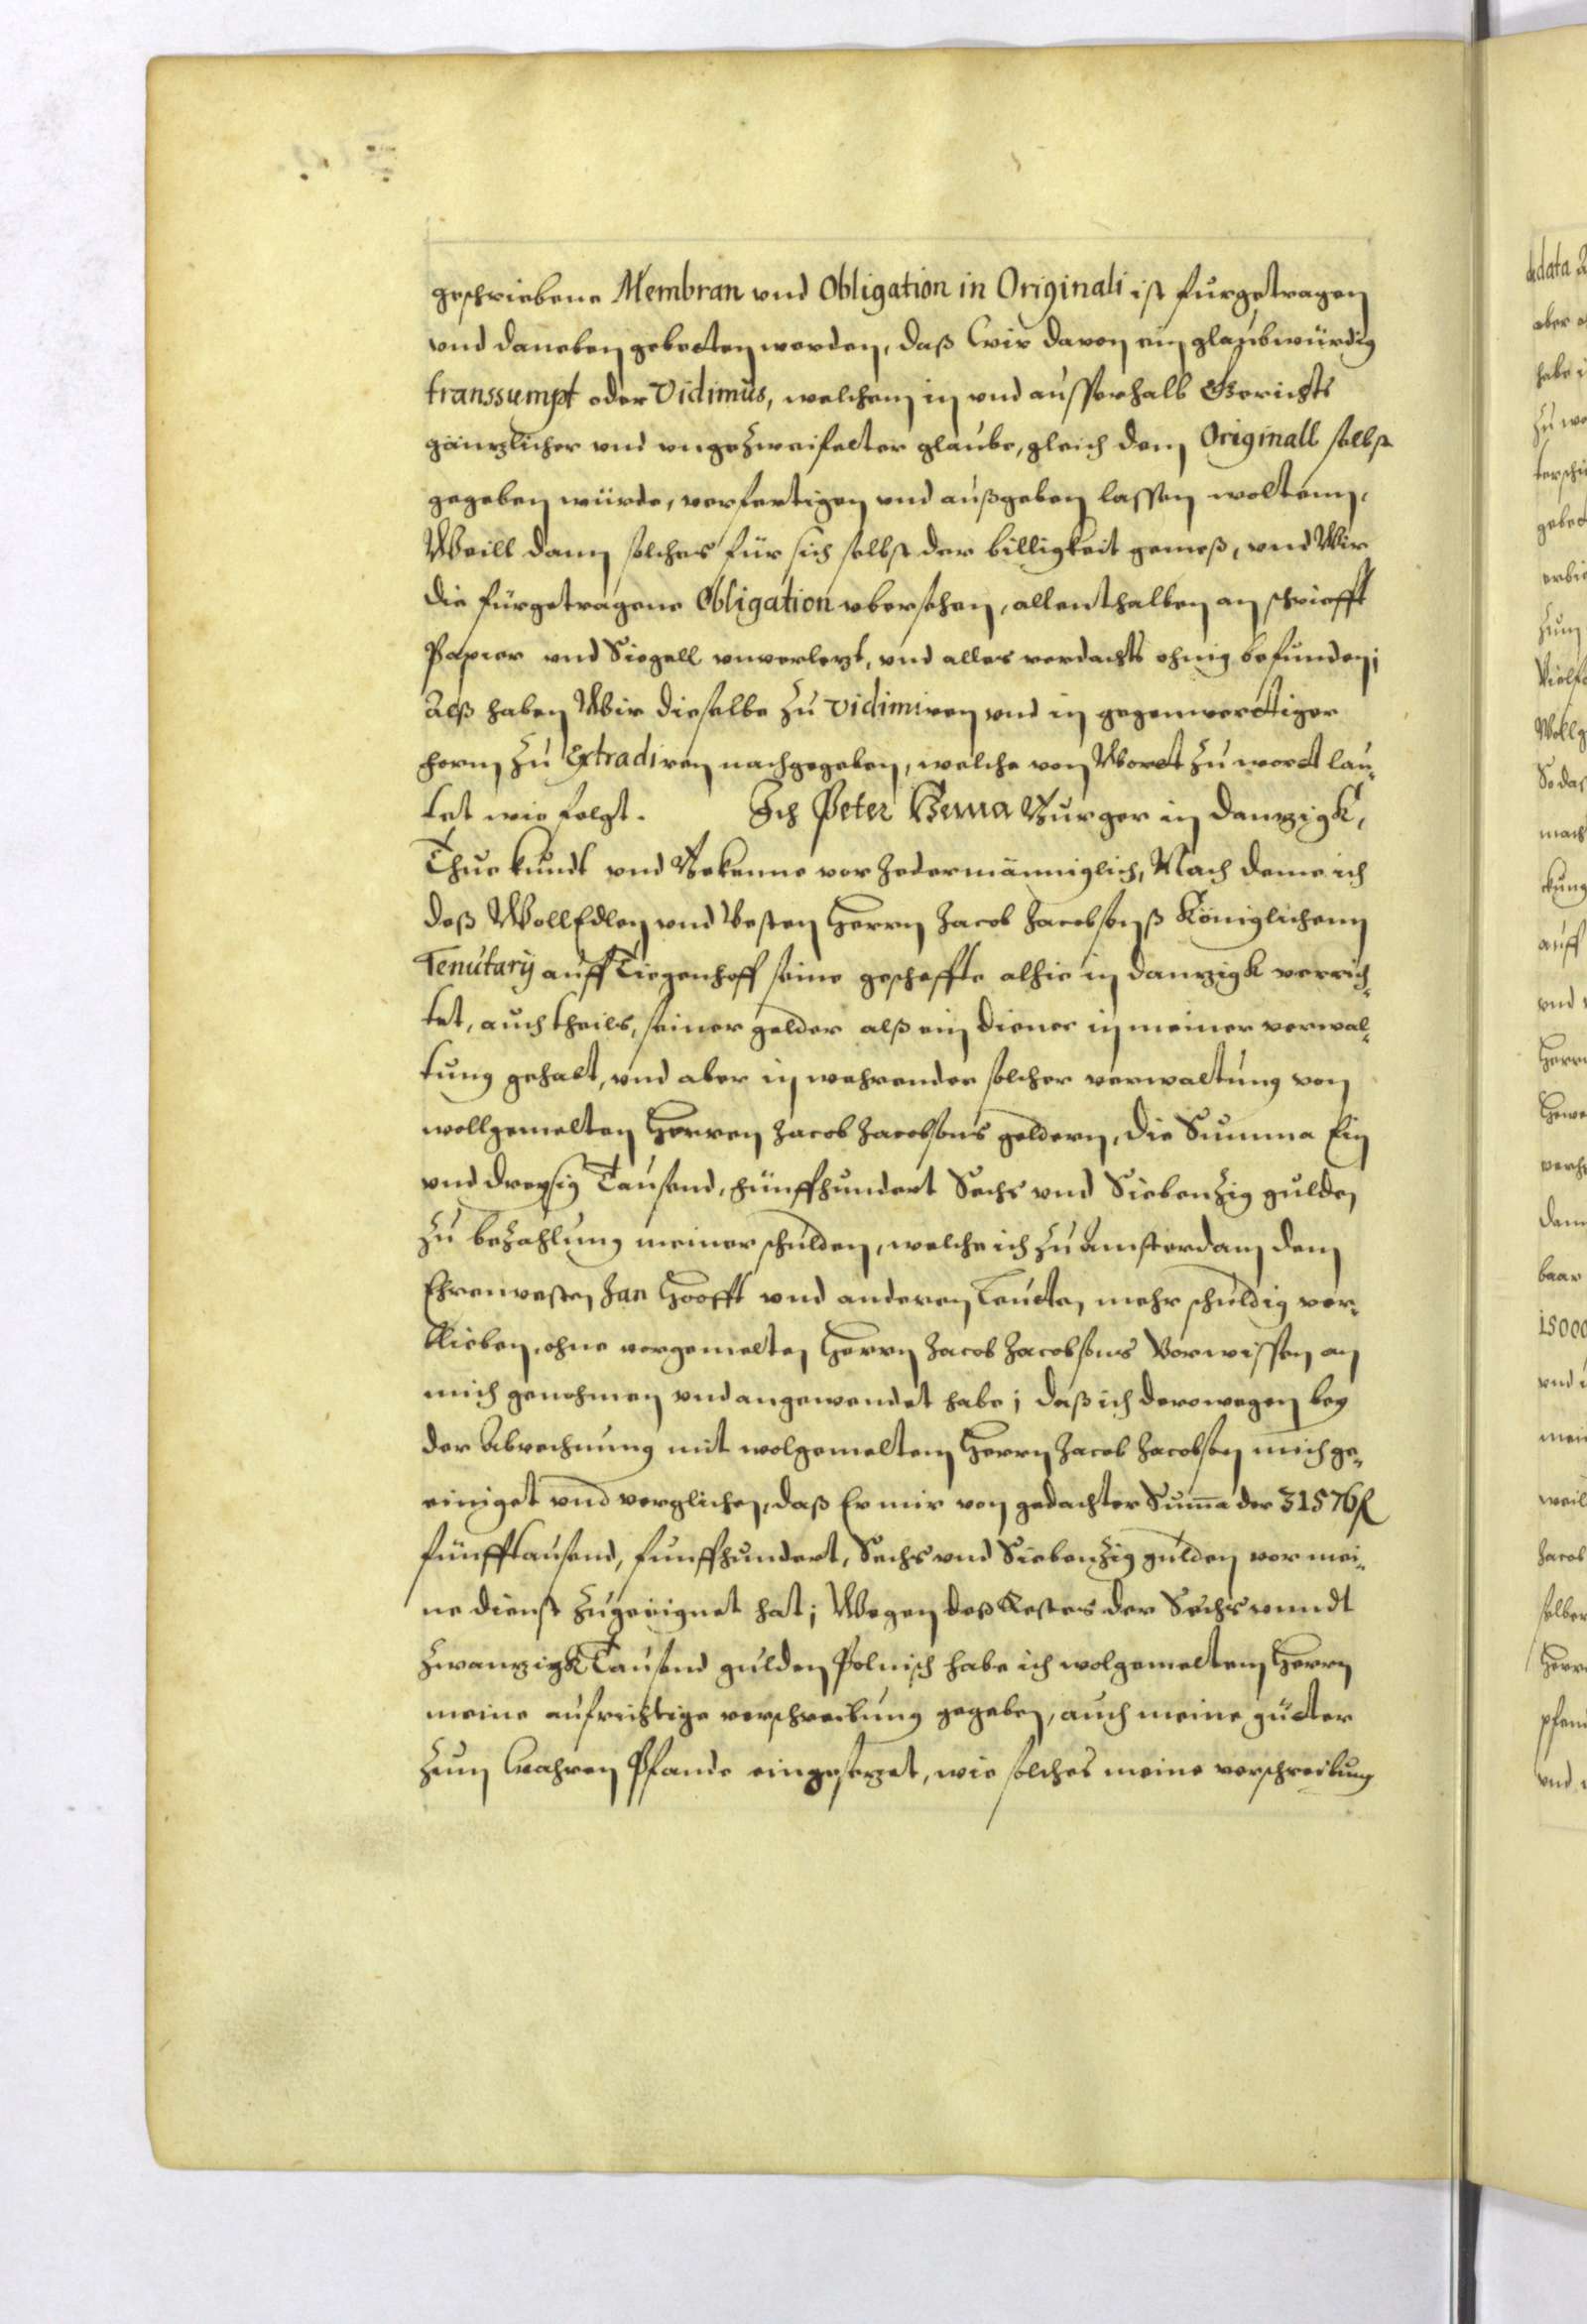 geschriebene Membran vnd Obligation in Originali ist furgetragen
vnd daneben gebetten worden, daß wir davon ein glaubwürdig
transsumpt oder Vidimus, welchem in vnd ausserhalb Gerichts
gäntzlicher vnd vngezweifelter glaube, gleich dem Originall selbst
gegeben würde, verfertigen vnd außgeben lassen woltenn,
Weill dann solches für sich selbst der billigkeit gemeß, vnd Wir
die fürgetragene Obligation vbersehen, allenthalben an schriefft
Papier vnd Siegell vnverletzt, vnd alles verdachts ohnig befunden;
Alß haben Wir dieselbe zu vidimiren vnd in gegenwerttiger
form zu Extradiren nachgegeben, welche von Wortt zu wortt lau¬
tet wie folgt. Ich Peter Bema Burger in Dantzigk,
Thue kundt vnd Bekenne vor Jedermänniglich, Nach deme ich
deß WollEdlen vnd Vesten Herrn Jacob Jacobsonß Königlichenn
Tenutarij auff Tiegenhoff seine geschäffte alhie in Dantzigk verrich¬
tet, auch theils, seiner gelder alß ein Diener in meiner verwal¬
tung gehabt, vnd aber in wehrender solcher verwaltung von
wollgemelten Herren Jacob Jacobsons geldern, die Summa Ein
vnd dreysig Tausend, fünffhundert Sechs vnd Siebenzig gulden
zu bezahlung meiner schulden, welche ich zu Amsterdam dem
Ehrenvesten Jan Hoofft vnd anderen Leutten, mehr schuldig ver¬
blieben, ohne vorgemelten Herrn Jacob Jacobsons Vorwissen an
mich genohmen vnd angewendet habe; daß ich derowegen bey
der Abrechnung mit wolgemeltem Herrn Jacob Jacobson mich ge¬
einiget vnd verglichen, daß Er mir von gedachter Suma der 31576 fl
fünfftausend, funffhundert, Sechs vnd Siebenzig gulden vor mei¬
ne dienst zugeeignet hat; Wegen deß Restes der Sechs vnndt
zwantzigk Tausend gulden Polnisch habe ich wolgemeltem Herrn
meine aufrichtige verschreibung gegeben, auch meine gütter
zum wahren Pfande eingesetzet, wie solches meine verschreibung